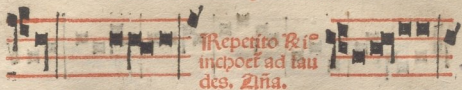 Repetito R̃io
inchoet᷑ ad lau
des. Aña.